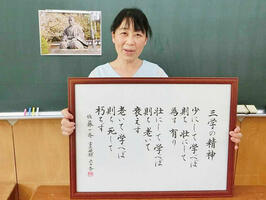 三学の精神
少にして学べば
則ち壮にして
為す有り
壮にして学べば
則ち老いて
衰えず
老いて学べば
則ち死して
朽ちず
佐藤一斎